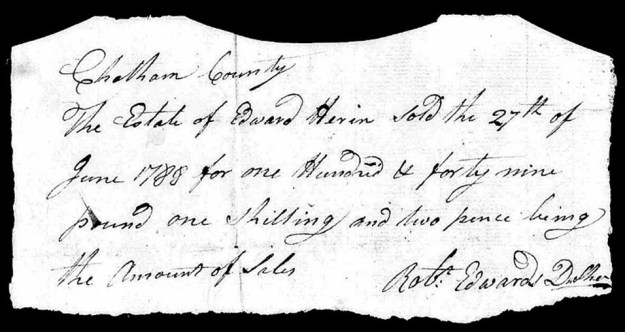 Chatham County
The Estate of Edward Herin Sold the 27th of
June 1788 for one Hundred & forty nine
pound one shilling and two pence being
the Amount of Sales
Robt. Edwards D. Sher